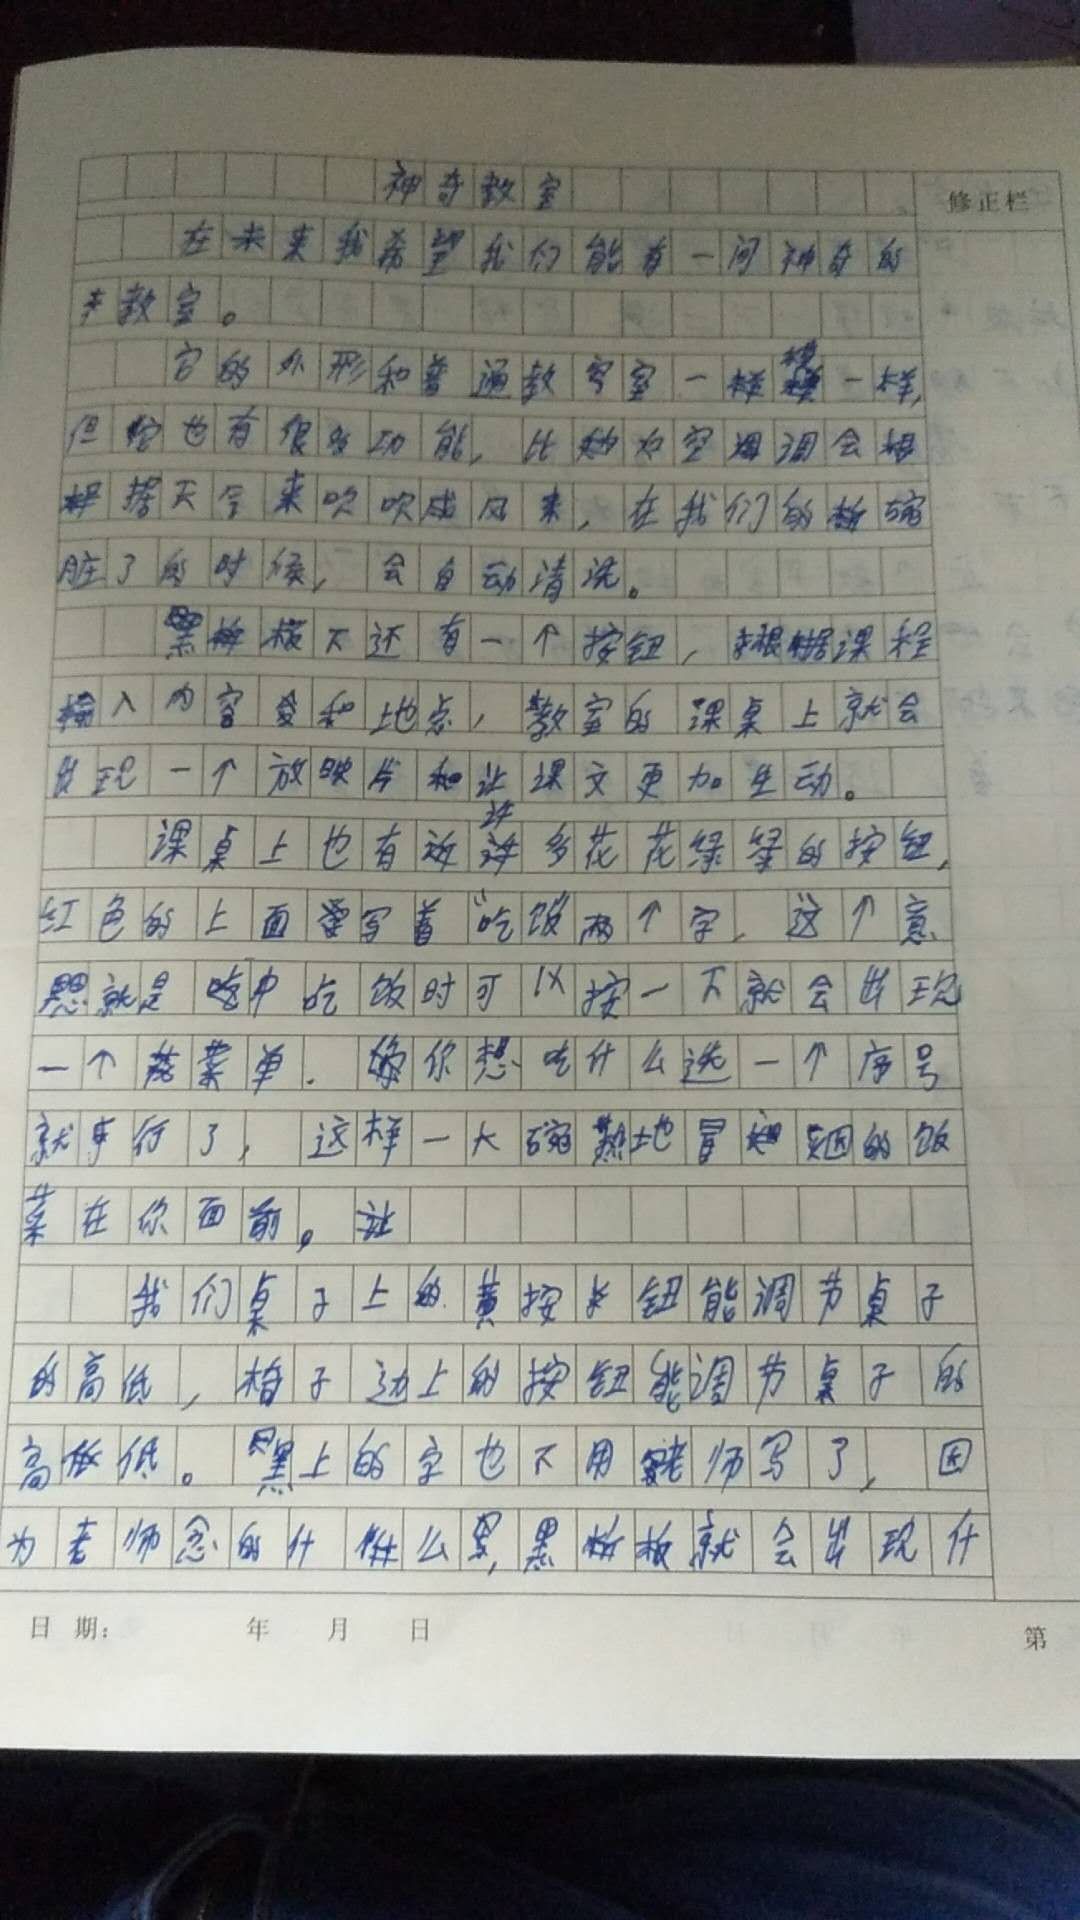 神奇教室
修正栏
在未来我希望我们能有一间神奇的
教室。
它的外形和普通教室一模一样,
但它也有很多功能,比如空调会根
据天气来吹成风来,在我们的碗
脏了的时候,会自动清洗。
黑板下还有一个按钮,根据课程
输入内容和地点,教室的课桌上就会
出现一个放映片让课文更加生动。
课桌上也有许多花花绿绿的按钮,
红色的上面写着“吃饭”两个字,这个意
思就是中吃饭时可以按一下就会出现
一个菜单.你想吃什么选一个序号
就行了,这样一大碗热地冒烟的饭
菜在你面前。
我们桌子上的黄按钮能调节桌子
的高低,椅子边上的按钮能调节桌子的
高低。黑上的字也不用老师写了,因
为老师念的什么,黑板就会出现什
日期: 年 月 日
第